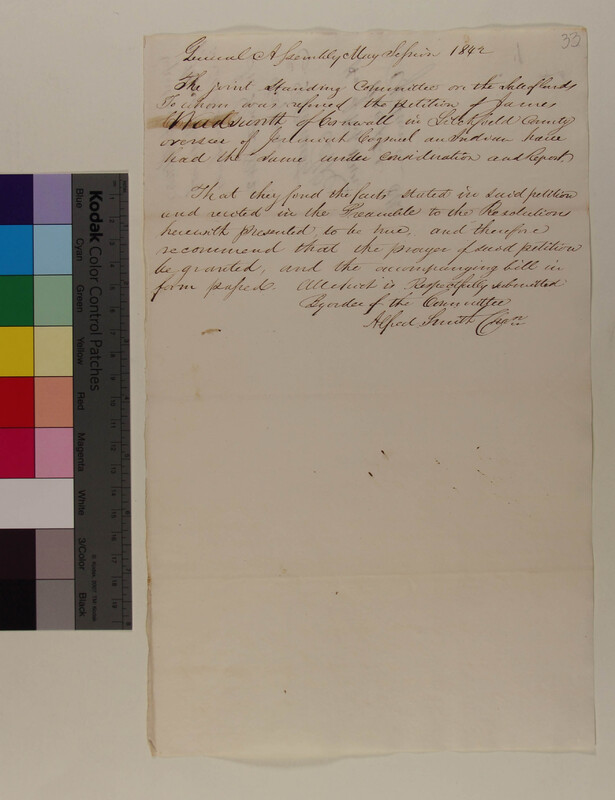 33
General Assembly May Session 1842
The joint Standing Committee on the Sale of lands
To whom was refered the petition of James
Wadsworth of Cornwall in Litchfield County
overseer of Jeremiah Cogswel an Indian have
had the same under consideration and Report,
That they find the facts stated in said petition
and recited in the Preamble to the Resolutions
herewith presented, to be true, and therefore
recommend that the prayer of said petition
be granted, and the accompanying bill in
form passed. All which is Respectfully submitted
By order of the Committee
Alfred Smith Chn
Kodak Color Control Patches
Blue
Cyan
Green
Yellow
Red
Magenta
White
3/Color
Black